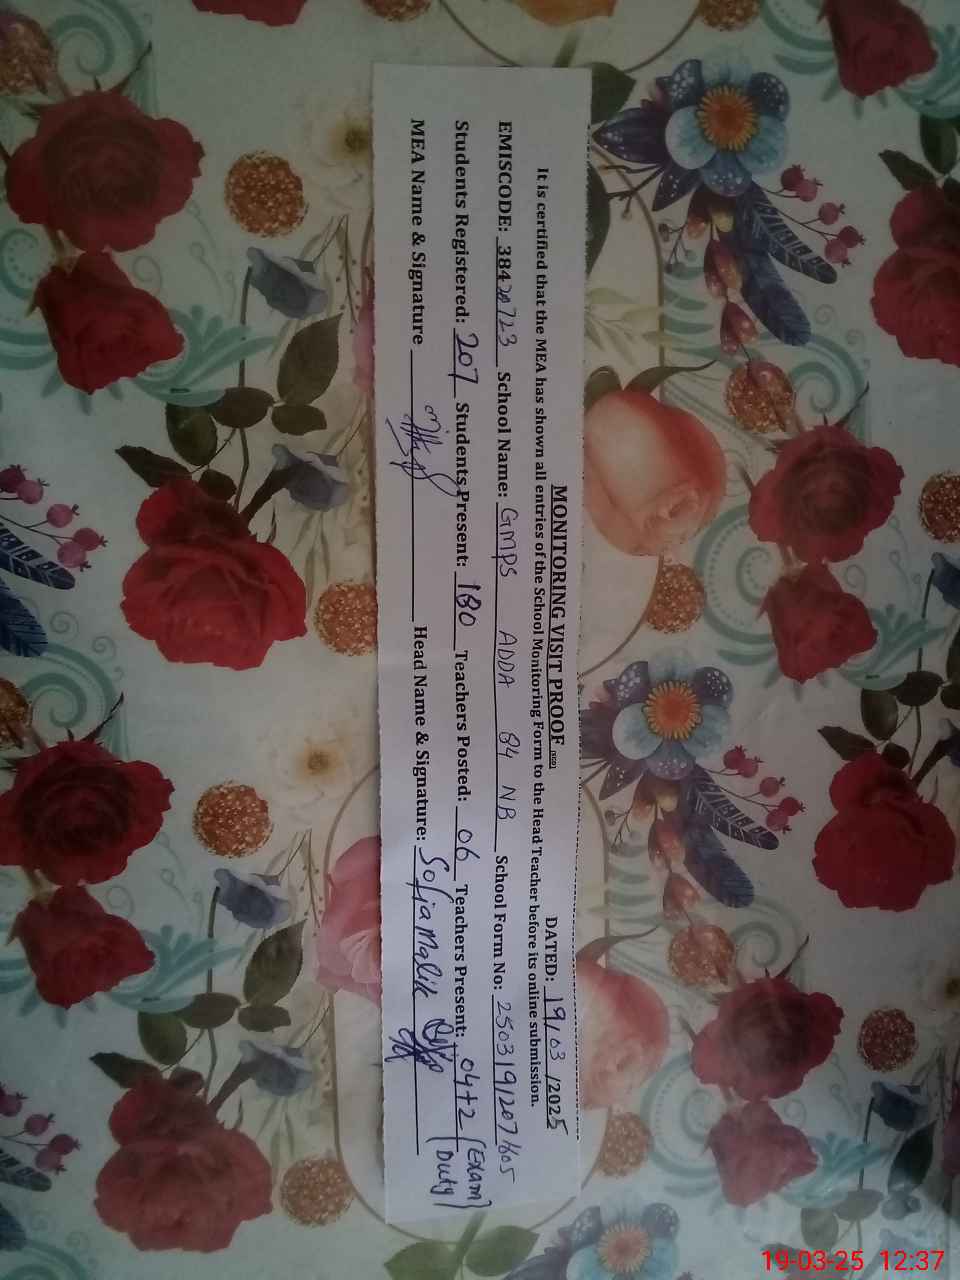 MONITORING VISIT PROOF DATED: 19/03/2025
It is certified that the MEA has shown all entries of the School Monitoring Form to the Head Teacher before its online submission.
EMISCODE: 38420723 School Name: GMPS ADDA 84 NB School Form No:
Students Registered: 207 Students Present: 180 Teachers Posted: 06 Teachers Present: 04+2 (Exam Duty)
MEA Name & Signature Head Name & Signature: Sofia Malik
19-03-25 12:37